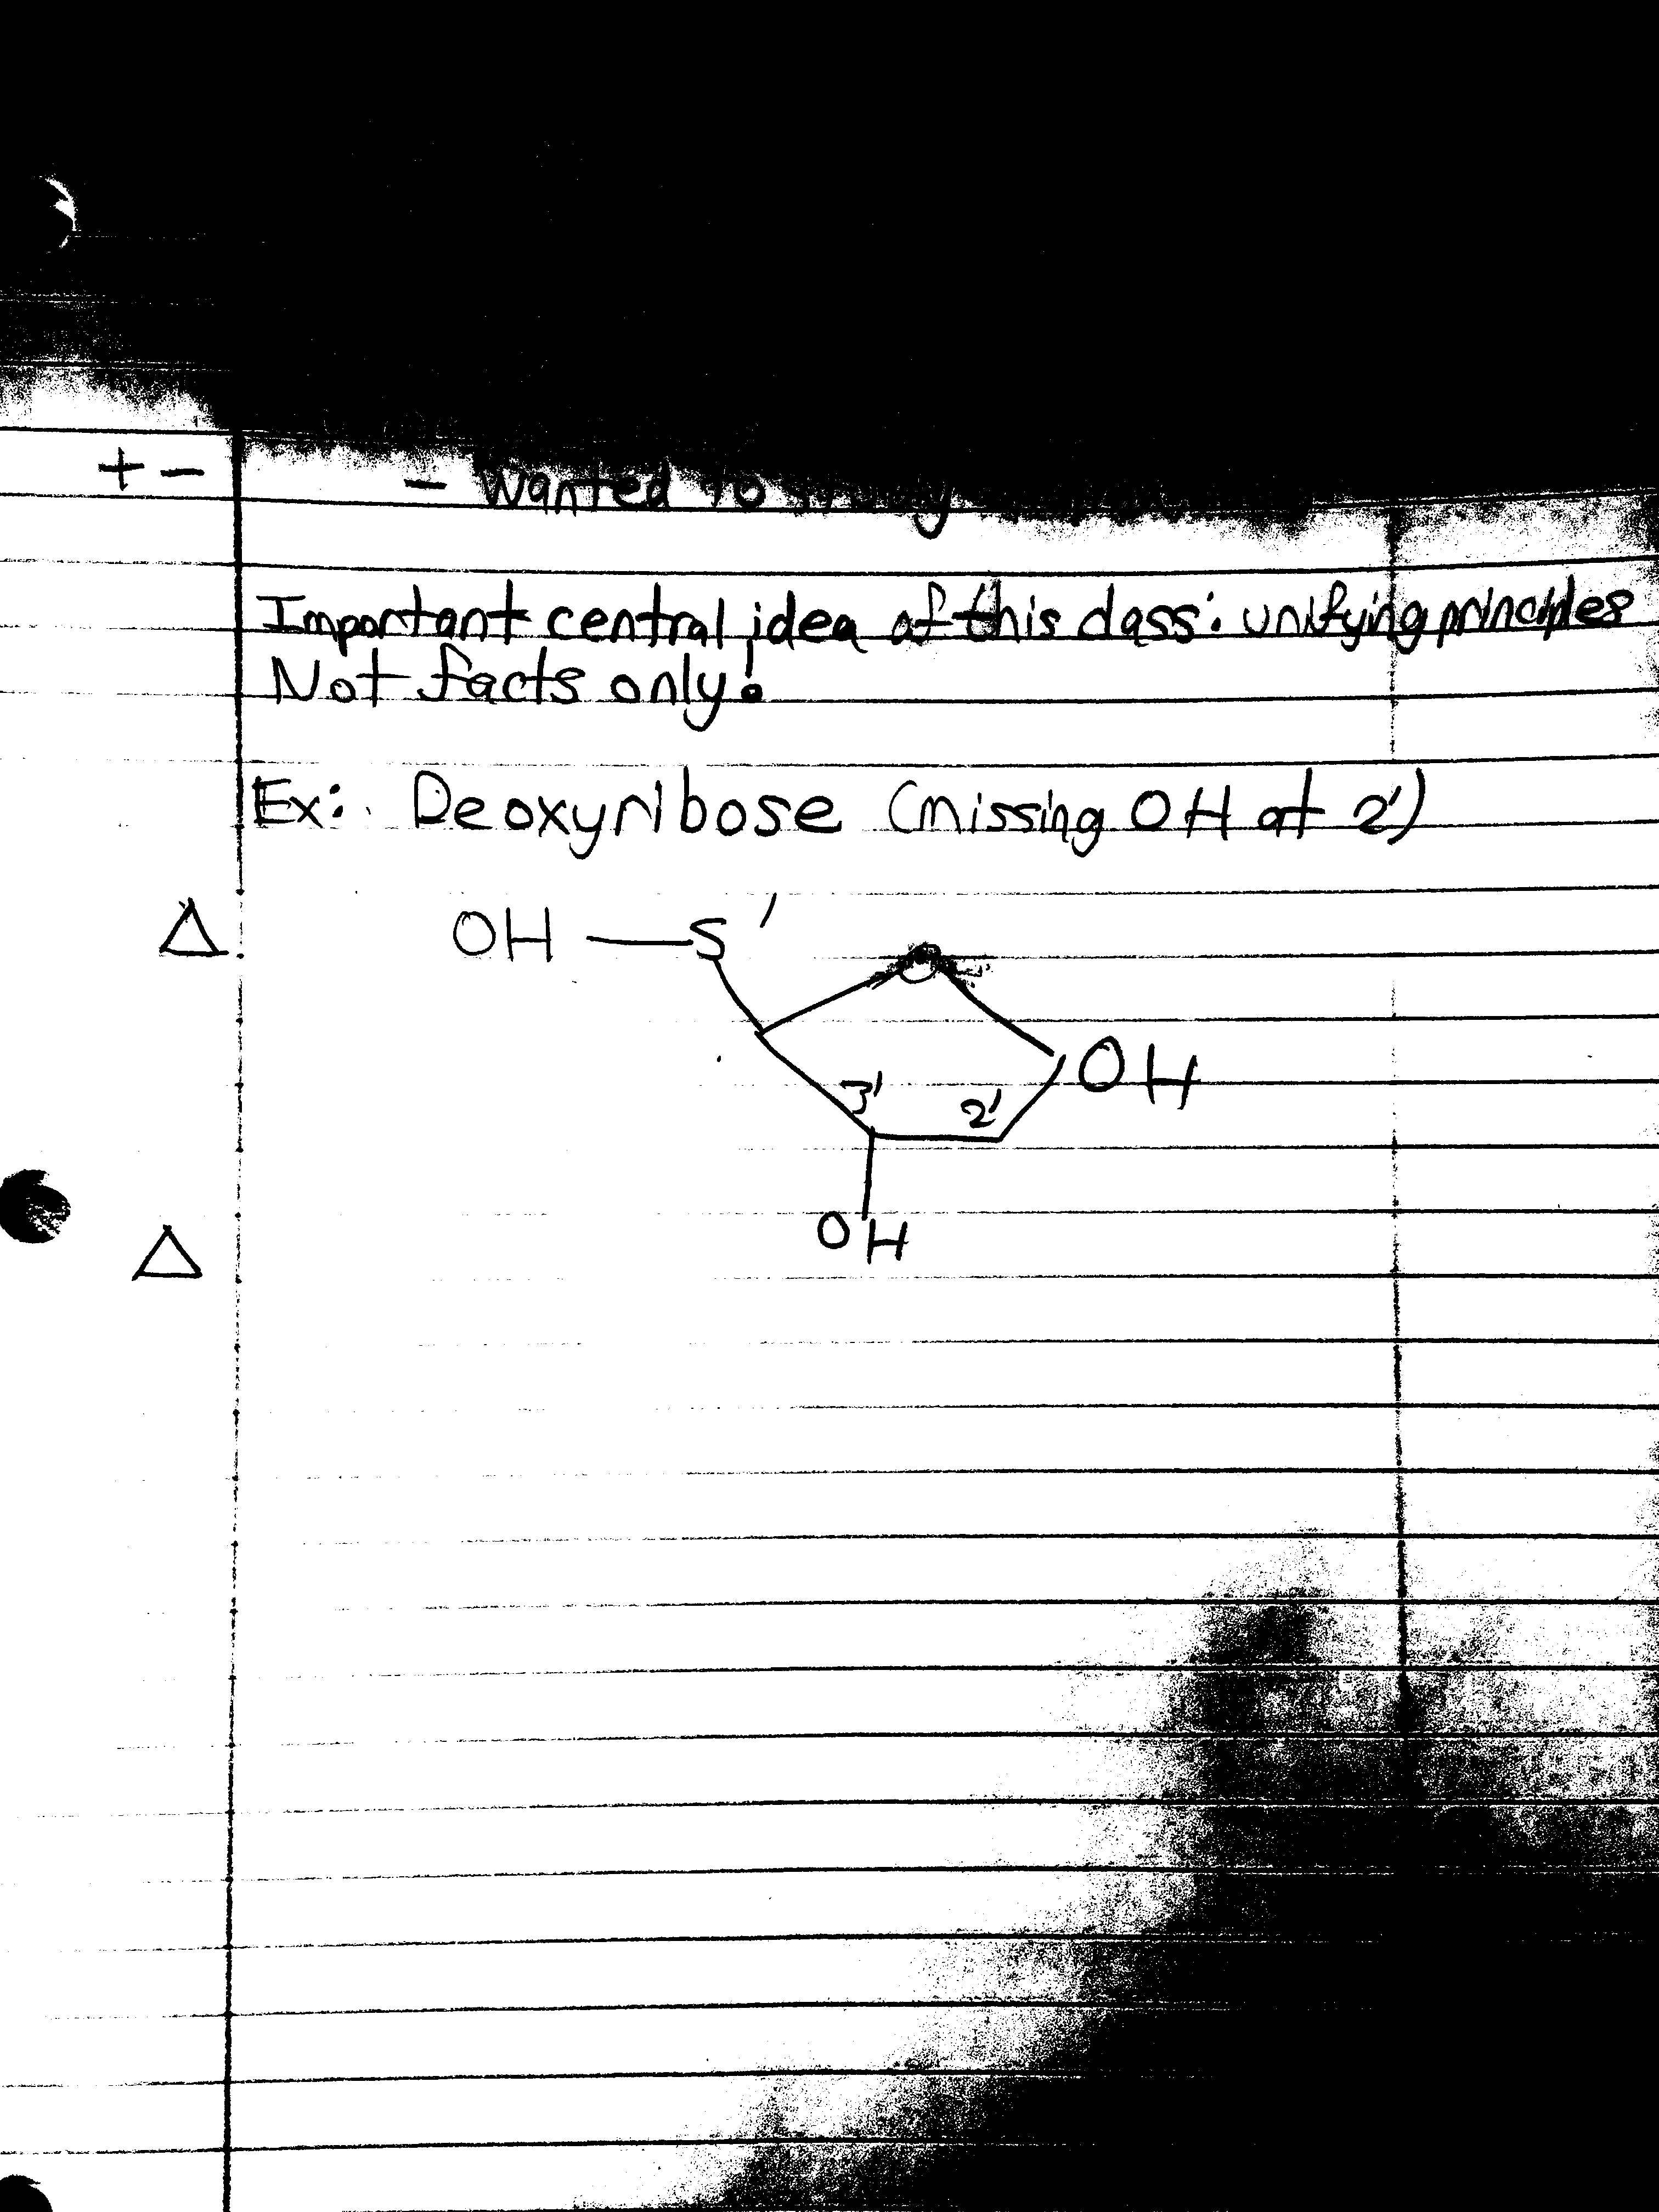 + -
- Wanted to study
Important central idea of this class: unifying principles
Not facts only!
Ex: Deoxyribose (missing OH at 2')
Δ
OH 5'
O
OH
3' 2'
OH
Δ